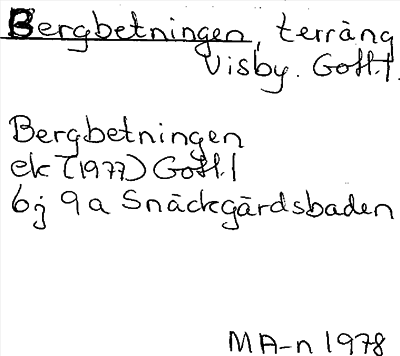 Bergbetningen, terräng
Visby. Gotl.
Bergbetningen
ek (1977) Gotl.
6j 9a Snäckgärdsbaden
MA-n 1978